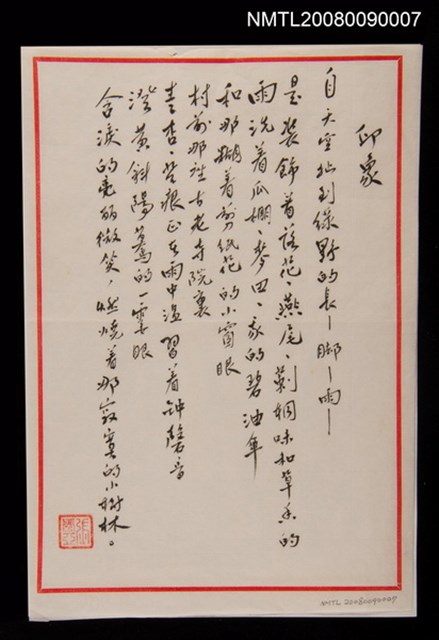 NMTL20080090007
印象
自天空扯到綠野的長—脚—雨—
是裝飾着落花、燕尾、薊桐味和草香的
雨洗着瓜棚、麥田、家的碧油傘
和那糊着剪紙花的小窗眼
村前那
古老寺院裏
青杏、苔痕正在雨中溫習着鐘磬音
澄黃斜陽驀的一霎眼
含淚的亮麗微笑，燃燒着那寂寞的小樹林。
NMTL 20080090007